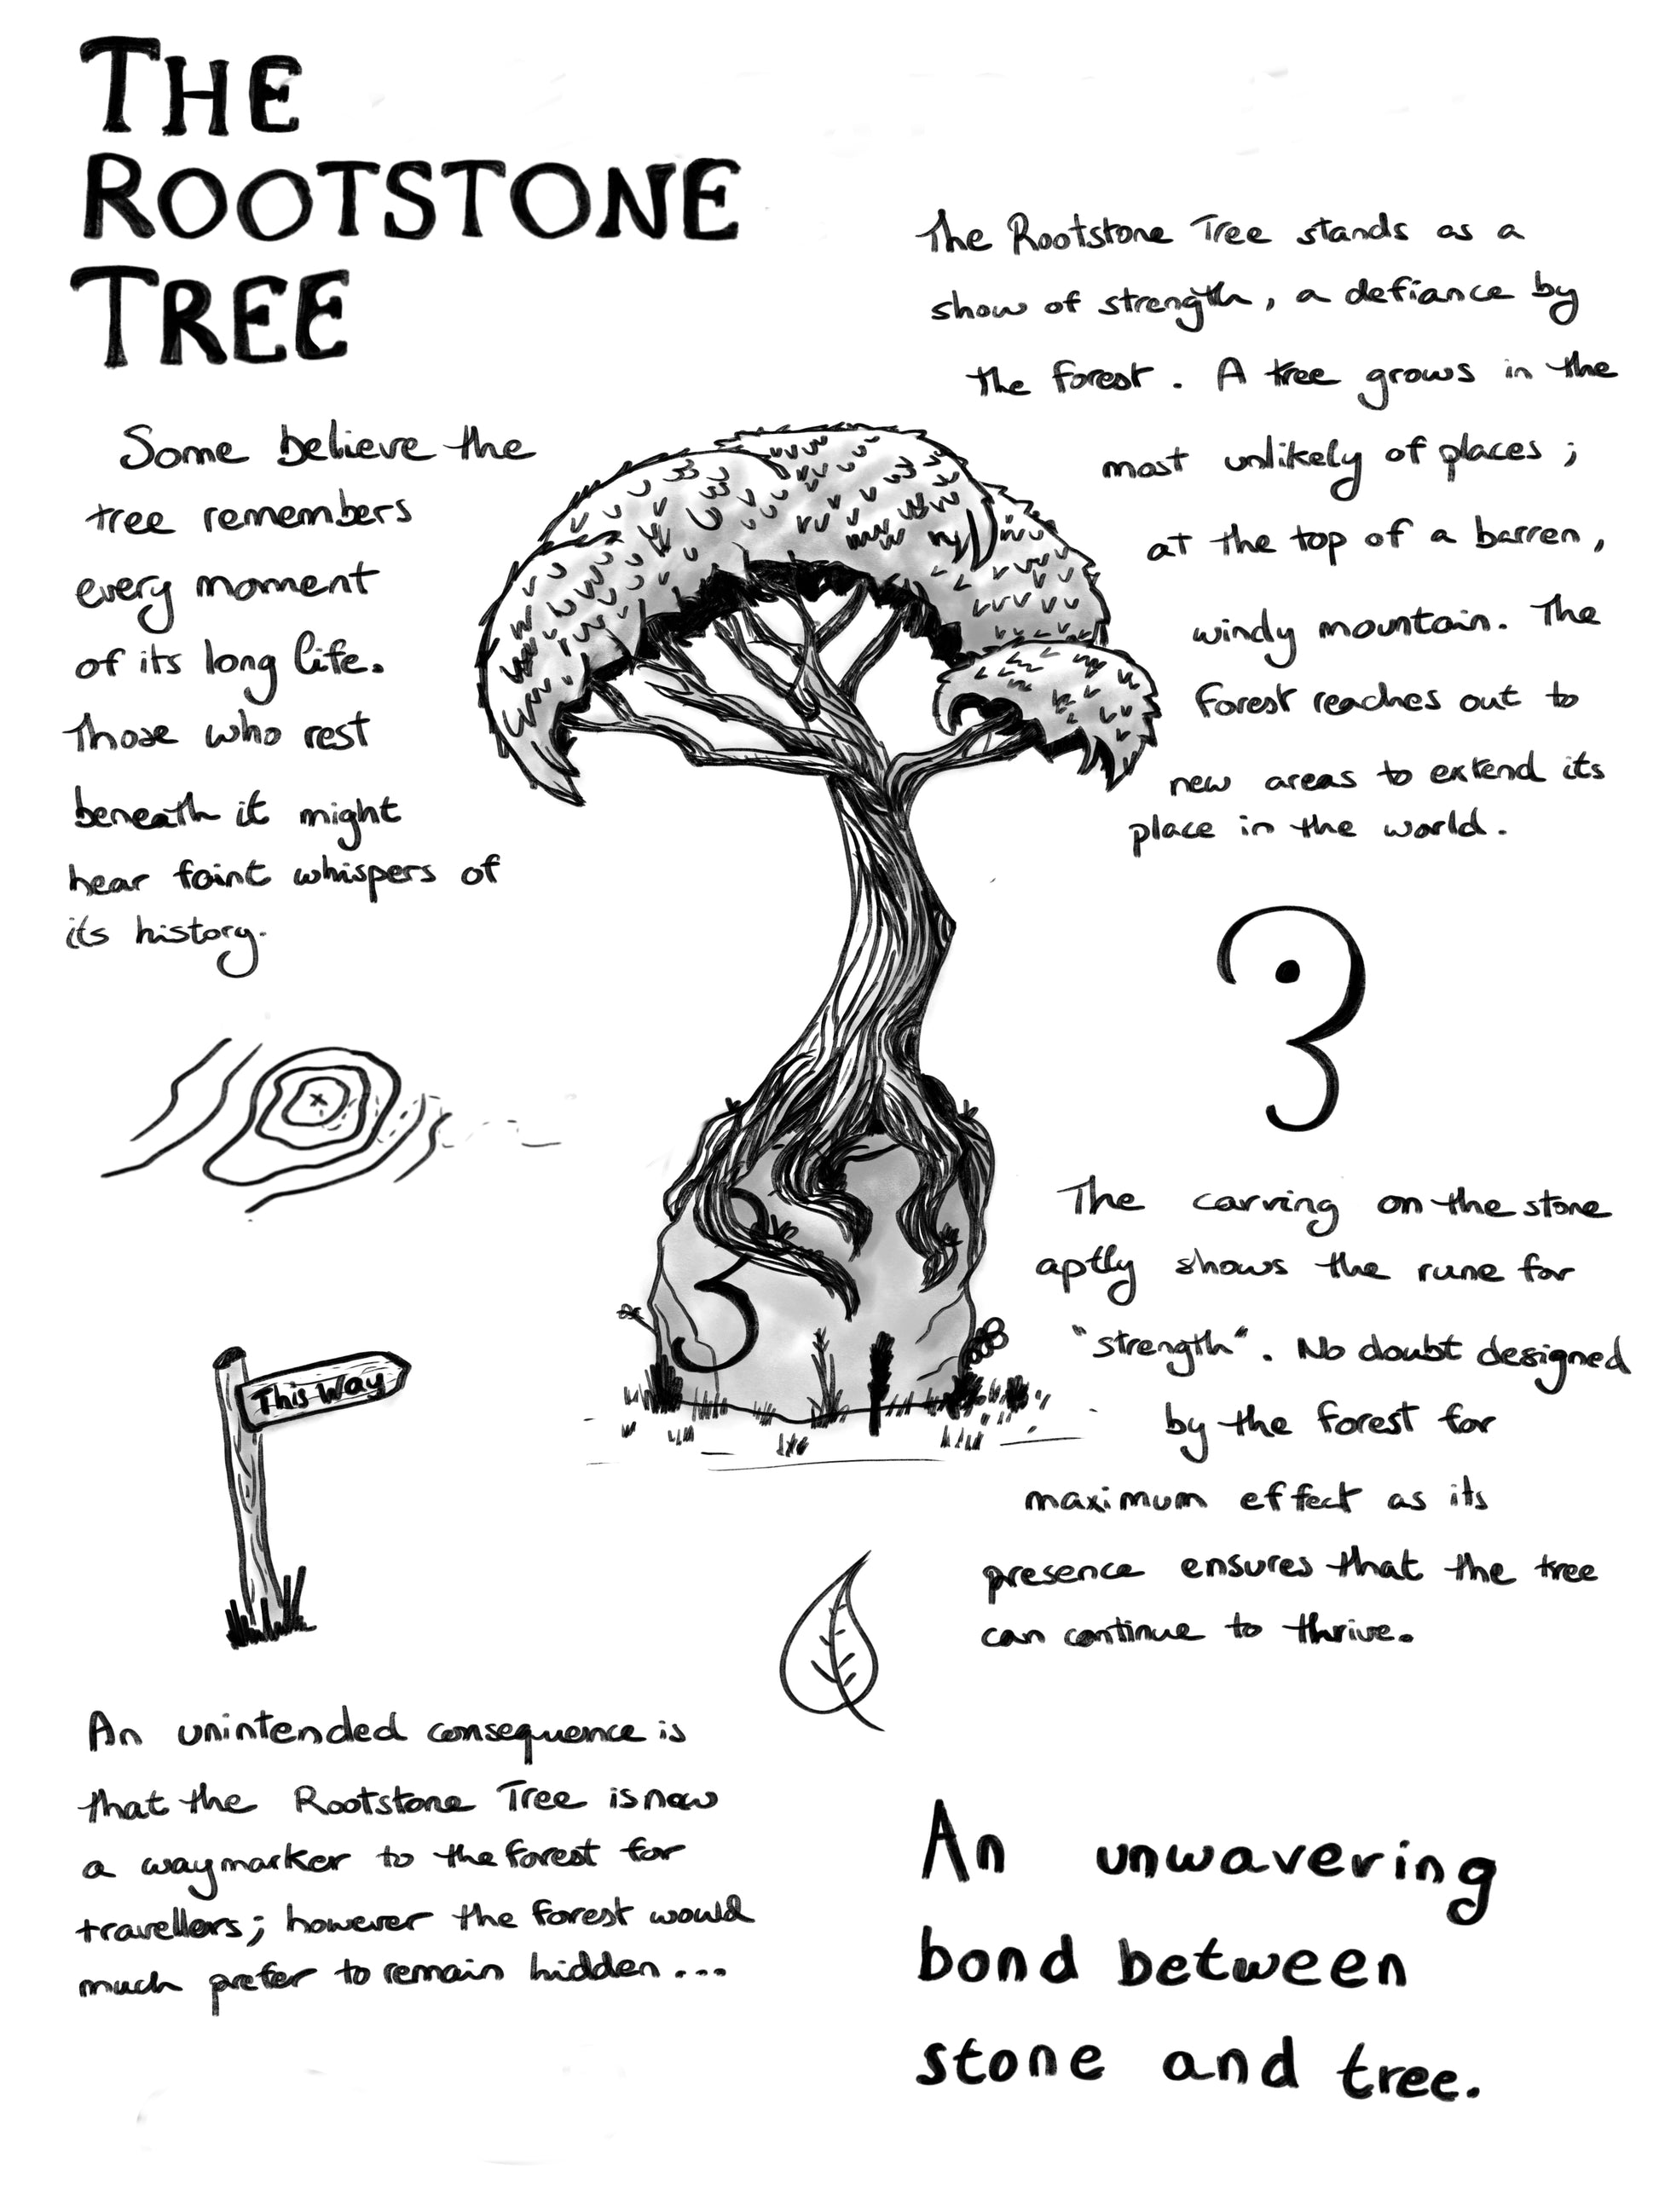 THE
ROOTSTONE
TREE
Some believe the
tree remembers
every moment
of its long life.
Those who rest
beneath it might
hear faint whispers of
its history.
The Rootstone Tree stands as a
show of strength, a defiance by
the forest. A tree grows in the
most unlikely of places;
at the top of a barren,
windy mountain. The
forest reaches out to
new areas to extend its
place in the world.
The carving on the stone
aptly shows the rune for
"strength". No doubt designed
by the forest for
maximum effect as its
presence ensures that the tree
can continue to thrive.
This Way
An unintended consequence is
that the Rootstone Tree is now
a waymarker to the forest for
travellers; however the forest would
much prefer to remain hidden...
An unwavering
bond between
stone and tree.